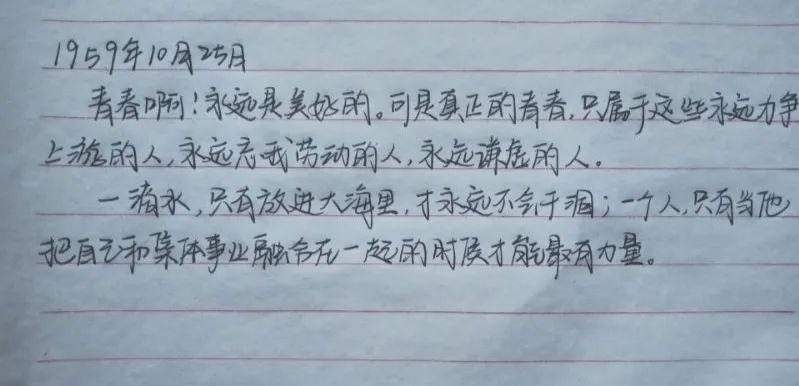 1959年10月25日
青春啊！永远是美好的。可是真正的青春，只属于这些永远力争
上游的人，永远忘我劳动的人，永远谦虚的人。
一滴水，只有放进大海里，才永远不会干涸；一个人，只有当他
把自己和集体事业融合在一起的时候才能最有力量。